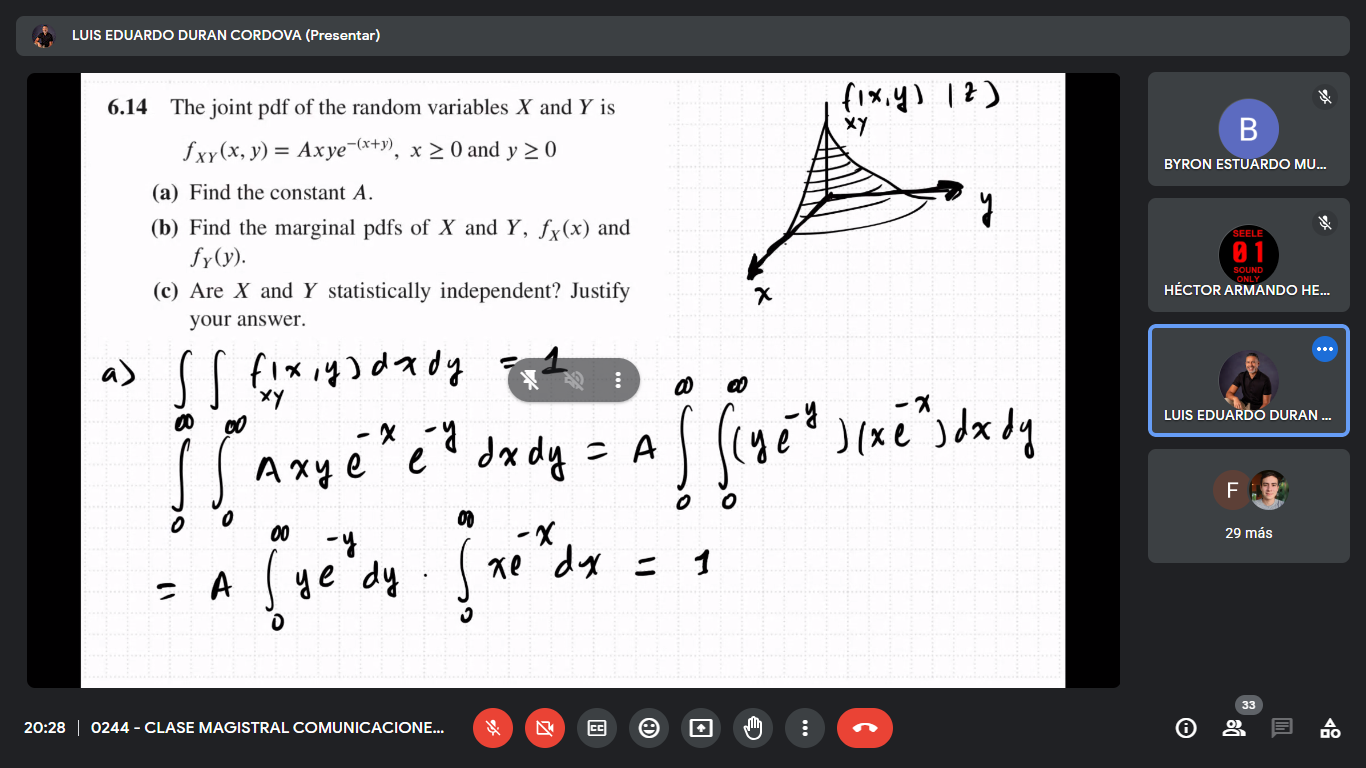 LUIS EDUARDO DURAN CORDOVA (Presentar)
6.14 The joint pdf of the random variables X and Y is
f_XY(x, y) = Axye^−(x+y), x ≥ 0 and y ≥ 0
(a) Find the constant A.
(b) Find the marginal pdfs of X and Y, f_X(x) and
f_Y(y).
(c) Are X and Y statistically independent? Justify
your answer.
f_XY(x,y) (z)
y
x
a) ∫∫ f_XY(x,y) dx dy = 1
∫_0^∞ ∫_0^∞ A x y e^-x e^-y dx dy = A ∫_0^∞ ∫_0^∞ (y e^-y)(x e^-x) dx dy
= A ∫_0^∞ y e^-y dy · ∫_0^∞ x e^-x dx = 1
B
BYRON ESTUARDO MU...
SEELE
01
SOUND
ONLY
HÉCTOR ARMANDO HE...
LUIS EDUARDO DURAN ...
F
29 más
20:28 | 0244 - CLASE MAGISTRAL COMUNICACIONE...
CC
33